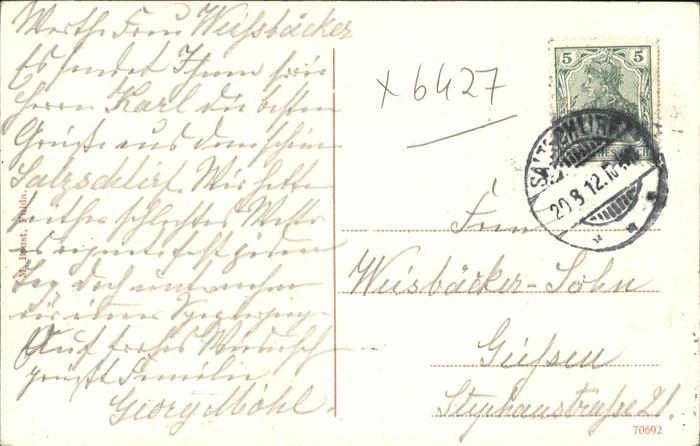 Werthe Frau Weißbäcker
Es sendet Ihnen sowie
Herrn Karl die besten
Grüße aus dem schönen
Salzschlirf. Wir hatten
bisher schlechtes Wetter
es regnete fast jeden
Tag doch
Auf frohes Wiedersehn
grüßt Familie
Georg Möhl.
M. Brust, Fulda.
x6427
5 5
SALZSCHLIRF
20.8.12.10
Frau
Weisbäcker-Sohn
Gießen
Stephanstraße 21.
70692